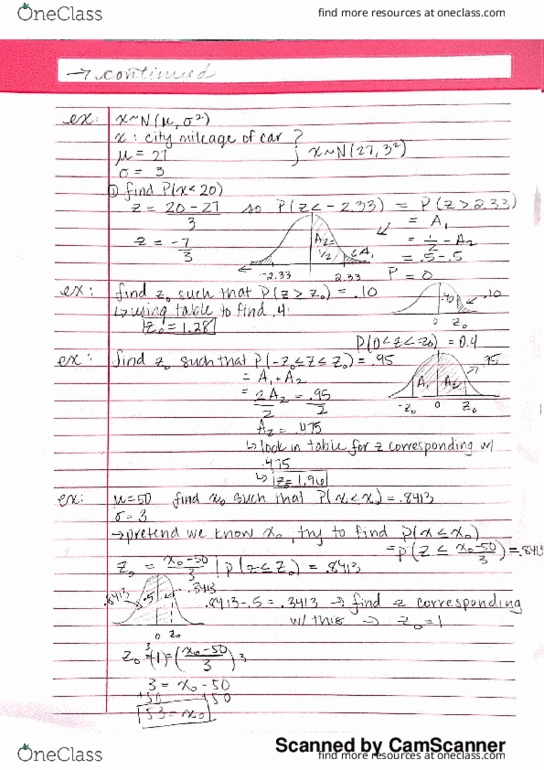 OneClass
find more resources at oneclass.com
→ continued
ex: x~N(μ, σ²)
x: city mileage of car ?
μ = 27
σ = 3
} x~N(27, 3²)
① find P(x<20)
z = 20-27 / 3 so P(z<-2.33) = P(z>2.33)
z = -7/3
= A₁
= 1/2 - A₂
= .5-.5
P = 0
A₂=
1/2
A₁
-2.33 2.33
ex: find z₀ such that P(z>z₀) = .10
↳ using table to find .4:
z₀ = 1.28
.40 .10
0 z₀
P(0<z<z₀) = 0.4
ex: find z₀ such that P(-z₀≤z≤z₀) = .95
= A₁+A₂
= 2A₂/2 = .95/2
A₂ = .475
.95
A₁ A₂
-z₀ 0 z₀
↳ look in table for z corresponding w/
.475
↳ z=1.96
ex: μ=50 find x₀ such that P(x<x₀) = .8413
σ=3
→ pretend we know x₀, try to find P(x≤x₀)
= P(z ≤ x₀-50/3) = .8413
z₀ = x₀-50/3 | P(z≤z₀) = .8413
.8413 .5 .3413
0 z₀
.8413-.5 = .3413 → find z corresponding
w/ this → z₀=1
z₀ ³(1) = (x₀-50/3) 3
3 = x₀-50
+50 +50
53 = x₀
Scanned by CamScanner
OneClass
find more resources at oneclass.com